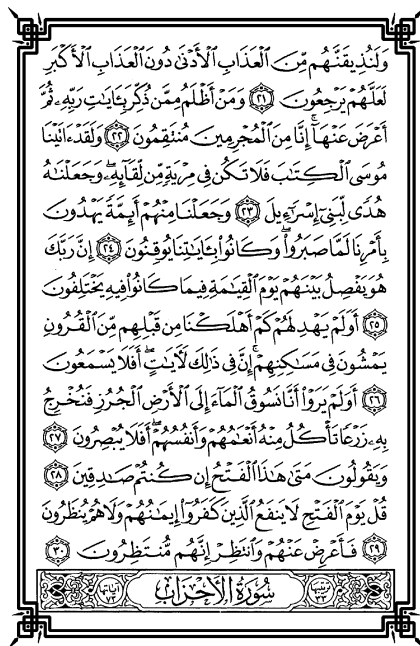 وَلَنُذِيقَنَّهُم مِّنَ الْعَذَابِ الْأَدْنَىٰ دُونَ الْعَذَابِ الْأَكْبَرِ
لَعَلَّهُمْ يَرْجِعُونَ ٢١ وَمَنْ أَظْلَمُ مِمَّن ذُكِّرَ بِـَٔايَاتِ رَبِّهِ ثُمَّ
أَعْرَضَ عَنْهَا ۚ إِنَّا مِنَ الْمُجْرِمِينَ مُنتَقِمُونَ ٢٢ وَلَقَدْ ءَاتَيْنَا
مُوسَى الْكِتَابَ فَلَا تَكُن فِي مِرْيَةٍ مِّن لِّقَآئِهِ ۖ وَجَعَلْنَاهُ
هُدًى لِّبَنِىٓ إِسْرَٰٓءِيلَ ٢٣ وَجَعَلْنَا مِنْهُمْ أَئِمَّةً يَهْدُونَ
بِأَمْرِنَا لَمَّا صَبَرُوا ۖ وَكَانُوا بِـَٔايَاتِنَا يُوقِنُونَ ٢٤ إِنَّ رَبَّكَ
هُوَ يَفْصِلُ بَيْنَهُمْ يَوْمَ الْقِيَامَةِ فِيمَا كَانُوا فِيهِ يَخْتَلِفُونَ
٢٥ أَوَلَمْ يَهْدِ لَهُمْ كَمْ أَهْلَكْنَا مِن قَبْلِهِم مِّنَ الْقُرُونِ
يَمْشُونَ فِي مَسَاكِنِهِمْ ۚ إِنَّ فِي ذَٰلِكَ لَآيَاتٍ ۖ أَفَلَا يَسْمَعُونَ
٢٦ أَوَلَمْ يَرَوْا أَنَّا نَسُوقُ الْمَآءَ إِلَى الْأَرْضِ الْجُرُزِ فَنُخْرِجُ
بِهِ زَرْعًا تَأْكُلُ مِنْهُ أَنْعَامُهُمْ وَأَنفُسُهُمْ ۖ أَفَلَا يُبْصِرُونَ ٢٧
وَيَقُولُونَ مَتَىٰ هَٰذَا الْفَتْحُ إِن كُنتُمْ صَادِقِينَ ٢٨
قُلْ يَوْمَ الْفَتْحِ لَا يَنفَعُ الَّذِينَ كَفَرُوٓا إِيمَانُهُمْ وَلَا هُمْ يُنظَرُونَ
٢٩ فَأَعْرِضْ عَنْهُمْ وَانتَظِرْ إِنَّهُم مُّنتَظِرُونَ ٣٠
ترتيبها ٣٣ سُورَةُ الْأَحْزَابِ آياتها ٧٣